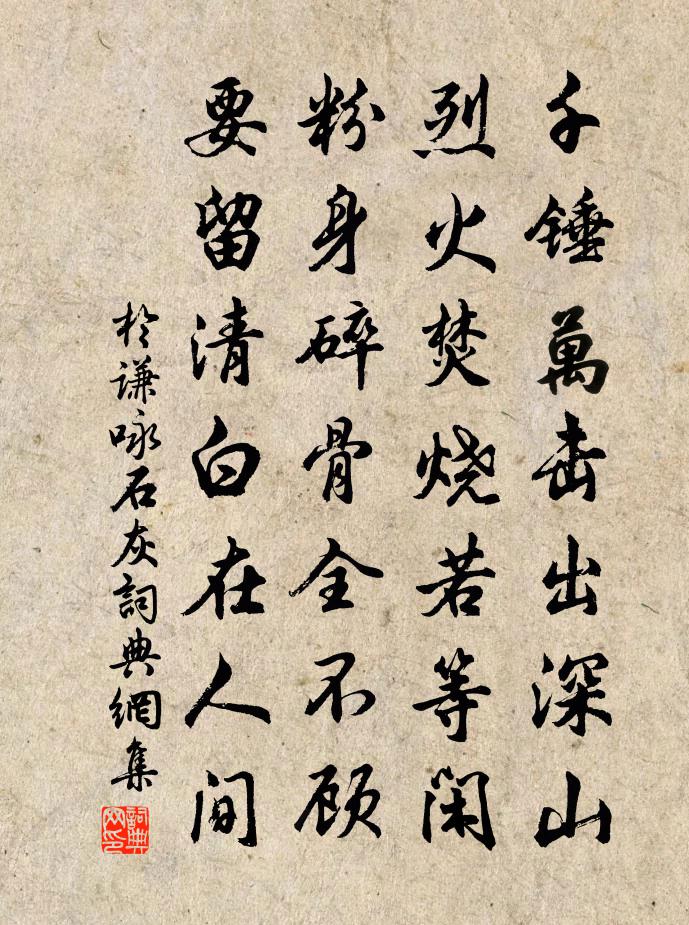 千锤萬击出深山
烈火焚烧若等闲
粉身碎骨全不顾
要留清白在人间
於谦咏石灰詞典網集
詞典
网印